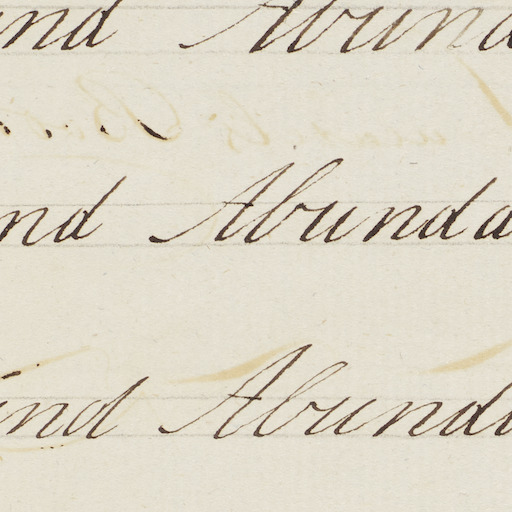 und Abund
und Abunda
und Abunda